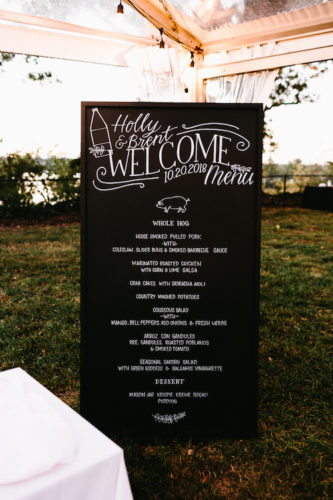 Holly
& Brent
WELCOME
10.20.2018 Menu
WHOLE HOG
HOUSE SMOKED PULLED PORK
-WITH-
COLESLAW, SLIDER BUNS & SMOKED BARBECUE SAUCE
MARINATED ROASTED CHICKEN
WITH CORN & LIME SALSA
CRAB CAKES WITH SRIRACHA AIOLI
COUNTRY MASHED POTATOES
COUSCOUS SALAD
-WITH-
MANGO, BELL PEPPERS, RED ONIONS & FRESH HERBS
ARROZ CON GANDULES
RICE, GANDULES, ROASTED POBLANOS
& SMOKED TOMATO
SEASONAL GARDEN SALAD
WITH GREEN GODDESS & BALSAMIC VINAIGRETTE
DESSERT
MASON JAR KRISPIE KREME BREAD
PUDDING